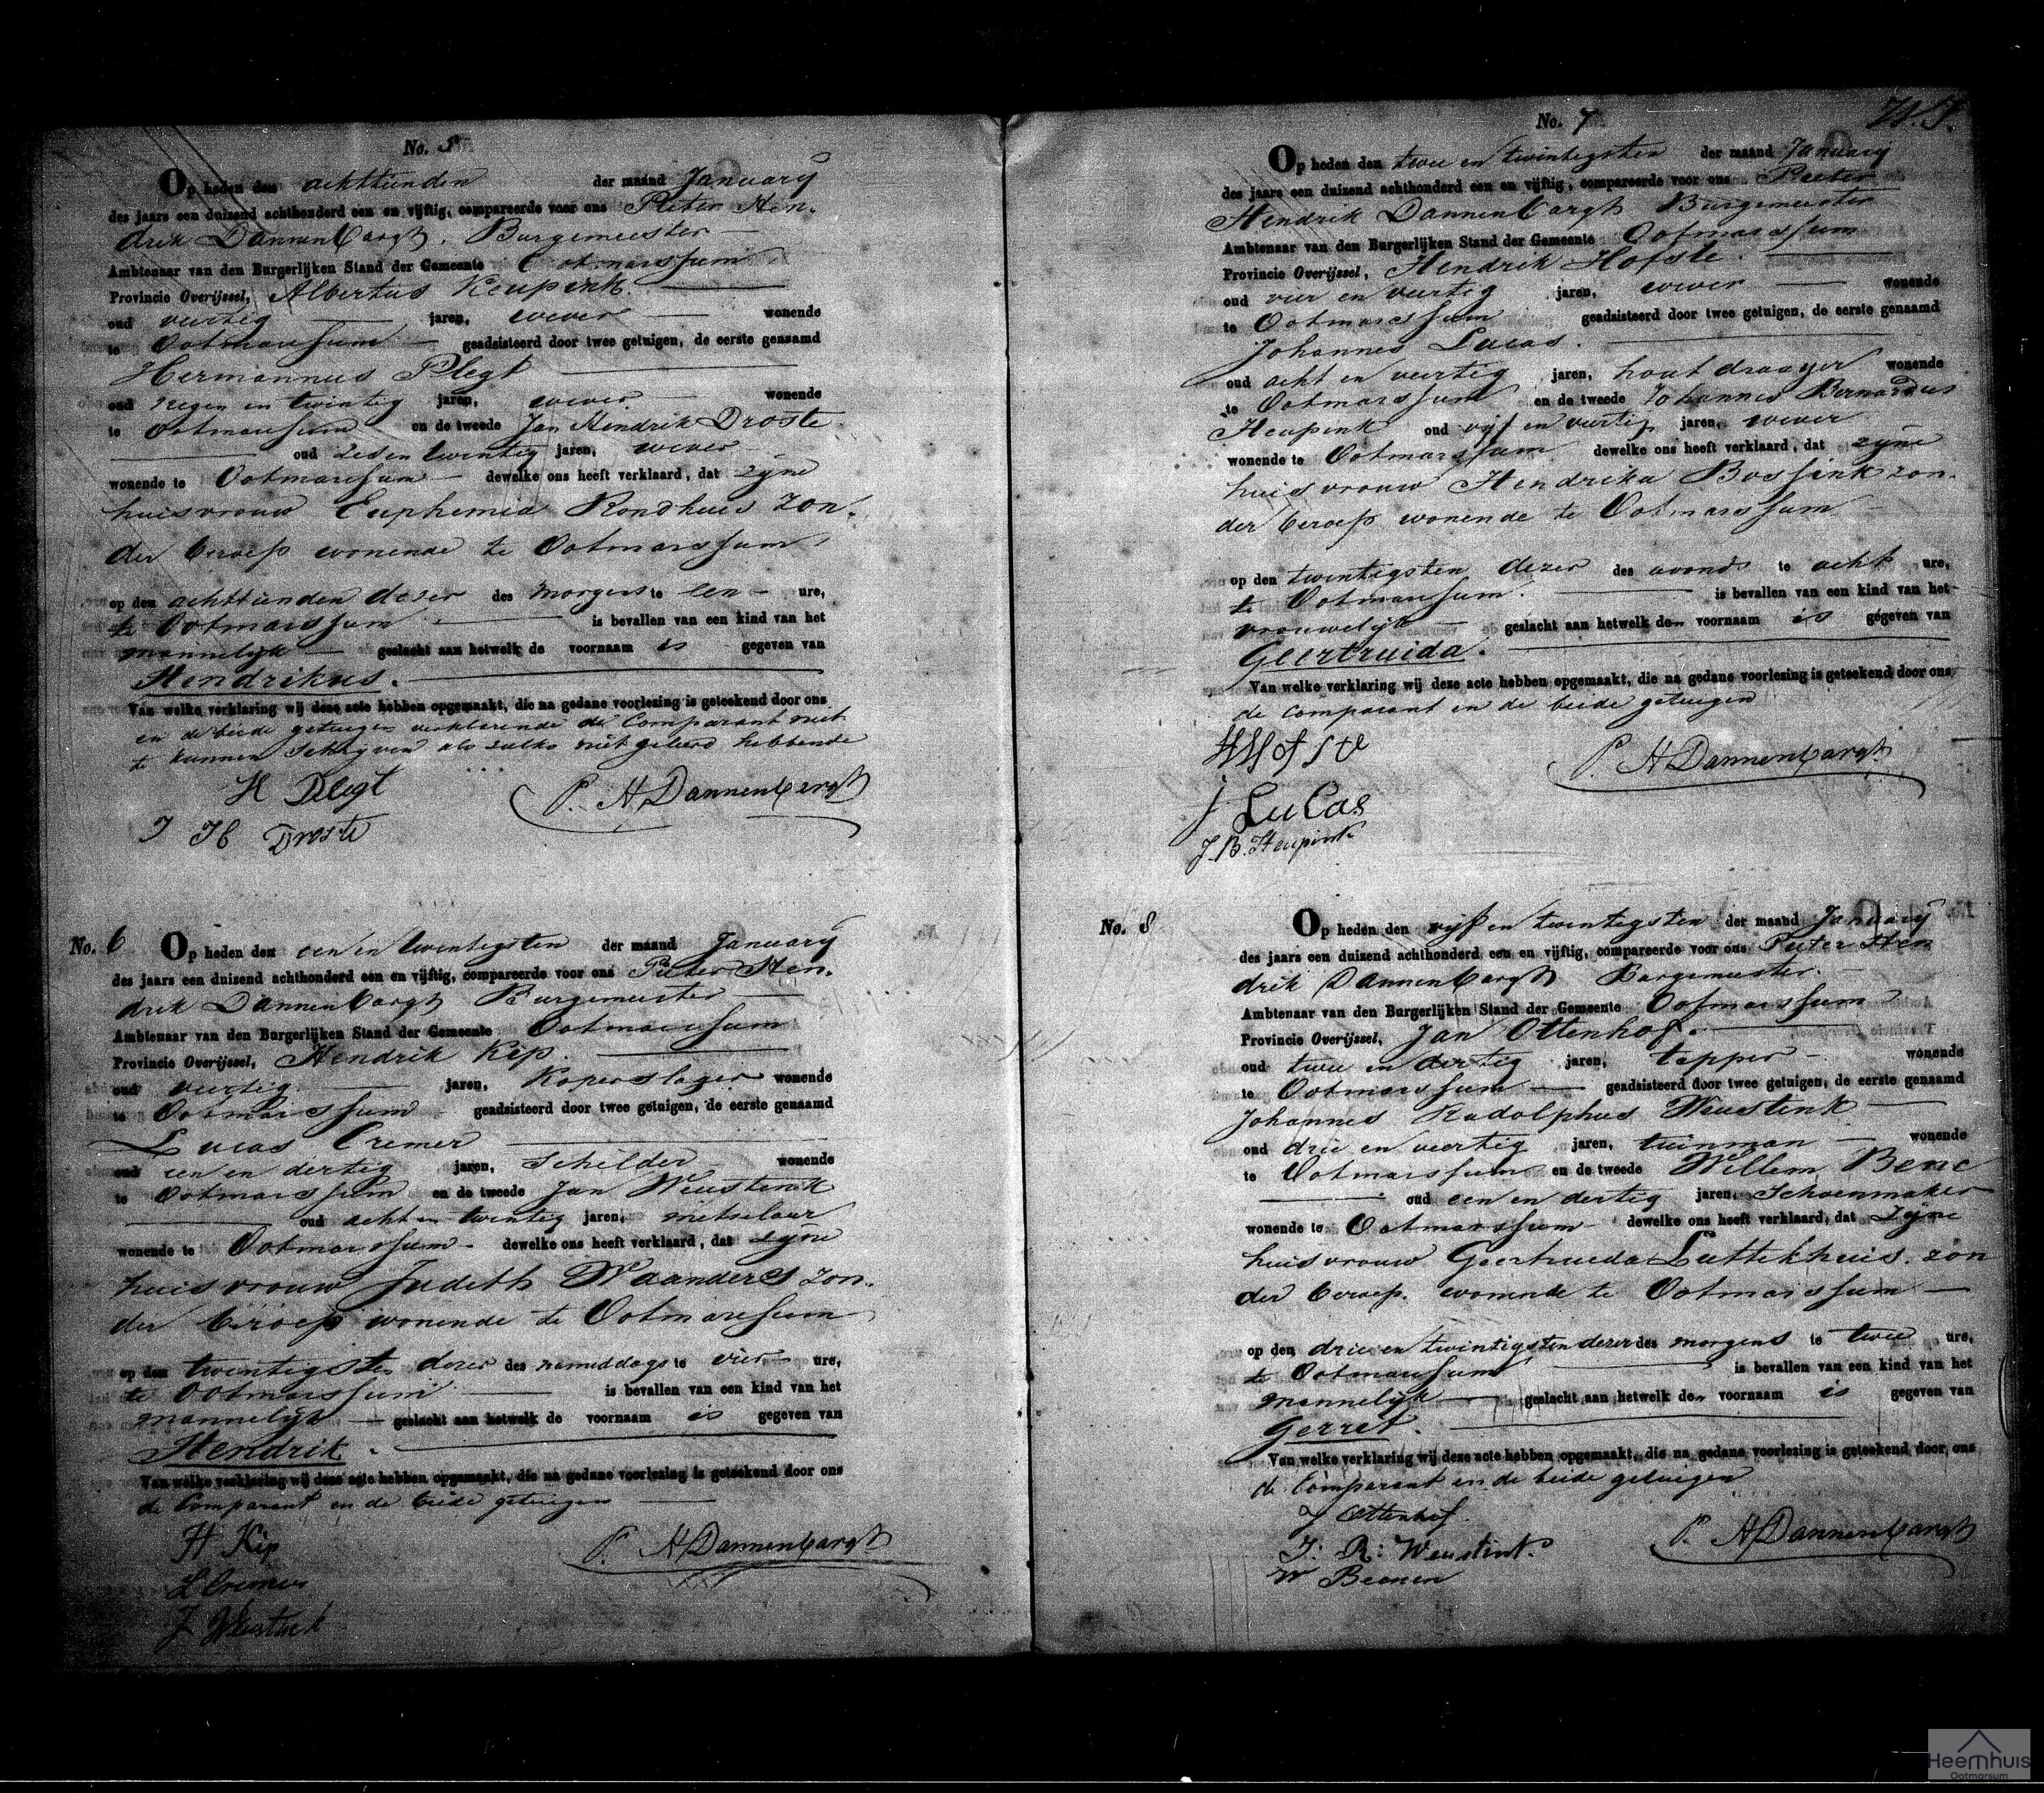 No. 5
Op heden den achttienden der maand January
des jaars een duizend achthonderd een en vijftig, compareerde voor ons Pieter Hen-
drik Dannenbargh. Burgemeester
Ambtenaar van den Burgerlijken Stand der Gemeente Ootmarssum
Provincie Overijssel, Albertus Keupink.
oud veertig jaren, wever wonende
te Ootmarssum geadsisteerd door twee getuigen, de eerste genaamd
Hermannus Plegt
oud negen en twintig jaren, wever wonende
te Ootmarssum en de tweede Jan Hendrik Droste
oud zes en twintig jaren, wever
wonende te Ootmarssum dewelke ons heeft verklaard, dat zyne
huisvrouw Euphemia Rondhuis zon-
der beroep wonende te Ootmarssum
op den achttienden dezer des morgens te een ure,
te Ootmarssum is bevallen van een kind van het
mannelijk geslacht aan hetwelk de voornaam is gegeven van
Hendrikus.
Van welke verklaring wij deze acte hebben opgemaakt, die na gedane voorlezing is geteekend door ons
en de beide getuigen verklarende de Comparant niet
te kunnen schryven als zulks niet geleerd hebbende
H Plegt P. H Dannenbergh
J H Droste
No. 6 Op heden den een en twintigsten der maand January
des jaars een duizend achthonderd een en vijftig, compareerde voor ons Pieter Hen-
drik Dannenbargh Burgemeester
Ambtenaar van den Burgerlijken Stand der Gemeente Ootmarssum
Provincie Overijssel, Hendrik Kip.
oud veertig jaren, Koperslager wonende
te Ootmarssum geadsisteerd door twee getuigen, de eerste genaamd
Lucas Cremer
oud een en dertig jaren, Schilder wonende
te Ootmarssum en de tweede Jan Weustenk
oud acht en twintig jaren, metselaar
wonende te Ootmarssum dewelke ons heeft verklaard, dat zyne
huisvrouw Judeth Waanders zon-
der beroep wonende te Ootmarssum
op den twintigsten dezer des namiddags te vier ure,
te Ootmarssum is bevallen van een kind van het
mannelijk geslacht aan hetwelk de voornaam is gegeven van
Hendrik.
Van welke verklaring wij deze acte hebben opgemaakt, die na gedane voorlezing is geteekend door ons
de Comparant en de beide getuigen
H Kip P. H Dannenbargh
L Cremer
J Weustink
No. 7
Op heden den twee en twintigsten der maand January
des jaars een duizend achthonderd een en vijftig, compareerde voor ons Pieter
Hendrik Dannenbargh Burgemeester
Ambtenaar van den Burgerlijken Stand der Gemeente Ootmarssum
Provincie Overijssel, Hendrik Hofste.
oud vier en veertig jaren, wever wonende
te Ootmarssum geadsisteerd door twee getuigen, de eerste genaamd
Johannes Lucas.
oud acht en veertig jaren, houtdraayer wonende
te Ootmarssum en de tweede Johannes Bernardus
Heupink oud vijf en veertig jaren, wever
wonende te Ootmarssum dewelke ons heeft verklaard, dat zyne
huisvrouw Hendrika Bossink zon-
der beroep wonende te Ootmarssum
op den twintigsten dezer des avonds te acht ure,
te Ootmarssum. is bevallen van een kind van het
vrouwelijk geslacht aan hetwelk de voornaam is gegeven van
Geertruida.
Van welke verklaring wij deze acte hebben opgemaakt, die na gedane voorlezing is geteekend door ons
de Comparant en de beide getuigen
H Hofste P. H Dannenbargh
J Lucas
J. B. Heupink
No. 8 Op heden den vijf en twintigsten der maand January
des jaars een duizend achthonderd een en vijftig, compareerde voor ons Pieter Hen
drik Dannenbargh Burgemeester.
Ambtenaar van den Burgerlijken Stand der Gemeente Ootmarssum
Provincie Overijssel, Jan Ottenhof.
oud twee en dertig jaren, tapper wonende
te Ootmarssum geadsisteerd door twee getuigen, de eerste genaamd
Johannes Rudolphus Weustenk
oud drie en veertig jaren, tuinman wonende
te Ootmarssum en de tweede Willem Bene
oud een en dertig jaren, Schoenmaker
wonende te Ootmarssum dewelke ons heeft verklaard, dat zyne
huisvrouw Geertruida Luttikhuis. zon
der beroep. wonende te Ootmarssum
op den drie en twintigsten dezer des morgens te twee ure,
te Ootmarssum is bevallen van een kind van het
mannelijk geslacht aan hetwelk de voornaam is gegeven van
Gerret.
Van welke verklaring wij deze acte hebben opgemaakt, die na gedane voorlezing is geteekend door ons
de Comparant en de beide getuigen
J Ottenhof.
J: R: Weustink. P. H Dannenbargh
W Beenen
Heemhuis
Ootmarsum